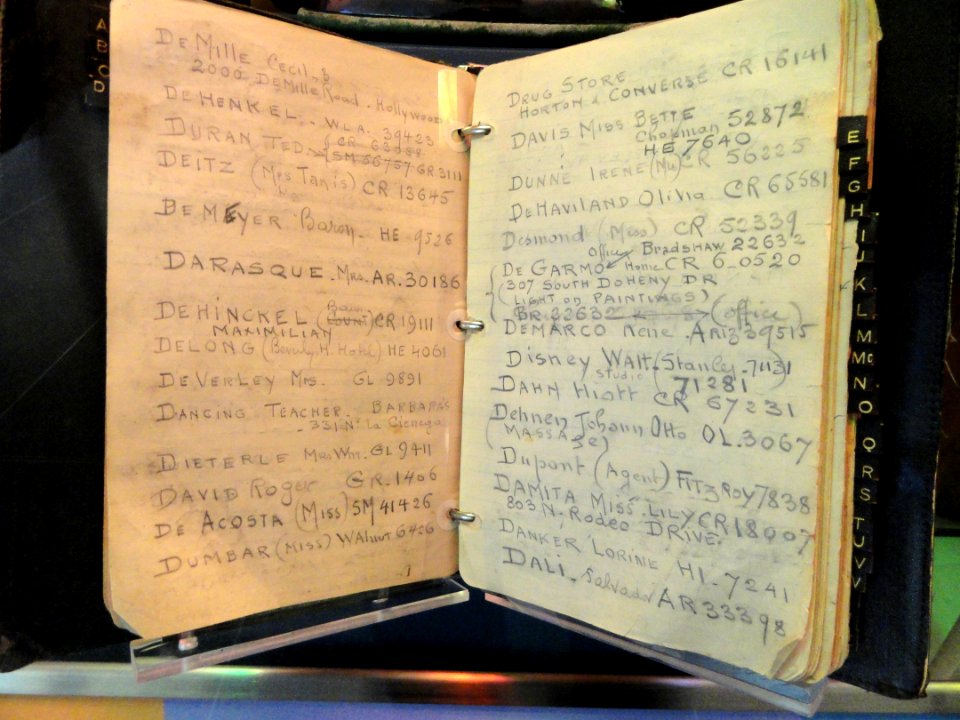 A
B
C
D
DEMILLE CECIL. B
2000 DEMILLE ROAD. HOLLYWOOD
DEHENKEL. W.L.A. 39423
CR
DURAN TED. SM 56757 GR 3111
DEITZ (MRS TANIS) CR 13645
DEMEYER Baron. HE 9526
DARASQUE. MRS. AR. 30186
DEHINCKEL (Baron COUNT) CR 19111
MAXIMILIAN
DELONG (Beverly H. Hotel) HE 4061
DEVERLEY MRS. GL 9891
DANCING TEACHER. BARBARAS
331 N. La Cienega
DIETERLE MRS WM. GL 9411
DAVID Roger GR. 1406
DE ACOSTA (MISS) SM 41426
DUMBAR (MISS) WALNUT 6426
DRUG STORE
HORTON & CONVERSE CR 16141
DAVIS MISS BETTE
Chapman 52872
HE 7640
DUNNE IRENE (Mu) CR 56225
DEHAVILAND OLIVIA CR 65581
Desmond (Miss) CR 52339
Office Bradshaw 22632
DE GARMO Home CR 6-0520
(307 SOUTH DOHENY DR
(LIGHT ON PAINTINGS)
BR 22632 (office)
DEMARCO Rene. ARIZ 39515
DISNEY WALT. (Stanley. 71131
Studio 71281
DAHN HIATT CR 67231
Dehnen Johann Otto OL. 3067
(MASSAGE)
Dupont (Agent) FITZROY 7838
DAMITA MISS. LILY CR 18007
803 N. RODEO DRIVE.
DANKER LORINE HI. 7241
DALI. Salvador AR 33398
E
F
G
H
I
J
K
L
M
Mc
N
O
Q
R
S
T
U
V